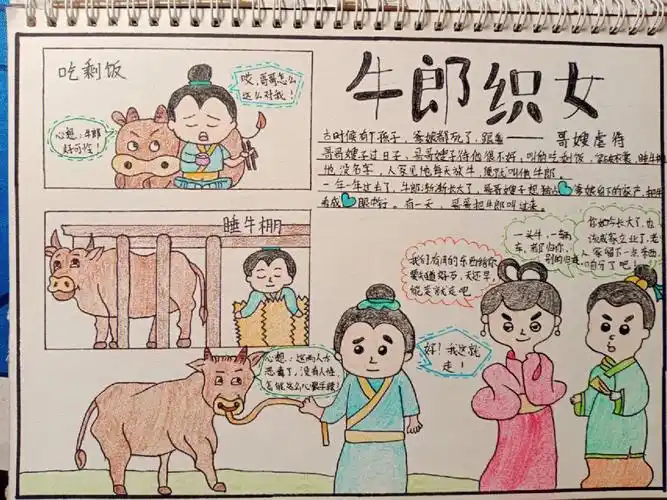 吃剩饭
哎,哥哥怎么
这么对我!
心想:牛郎
好可怜!
牛郎织女
古时候有个孩子,爹娘都死了,跟着
——哥嫂虐待
哥哥嫂子过日子,哥哥嫂子待他很不好,叫他吃剩饭,
他没名字,人家见他每天放牛,便就叫他牛郎。
一年一年过去了,牛郎渐渐长大了,哥哥嫂子想独占爹娘留下的家产,把牛郎
看成眼中钉。有一天,哥哥把牛郎叫过来。
睡牛棚
你如今长大了,也
该成家立业了,老
人家留下一点东西,
咱分了吧!
一头牛,一辆
车,都归你,
别的归我
我们有用的东西给你
要知道好歹,天还早,
能走就走吧
好!我这就
走!
心想:这两人太
恶毒了,没有人性,
怎能这么心狠手辣!